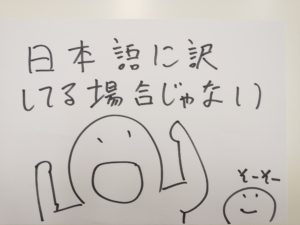 日本語に訳
してる場合じゃない
そーそー